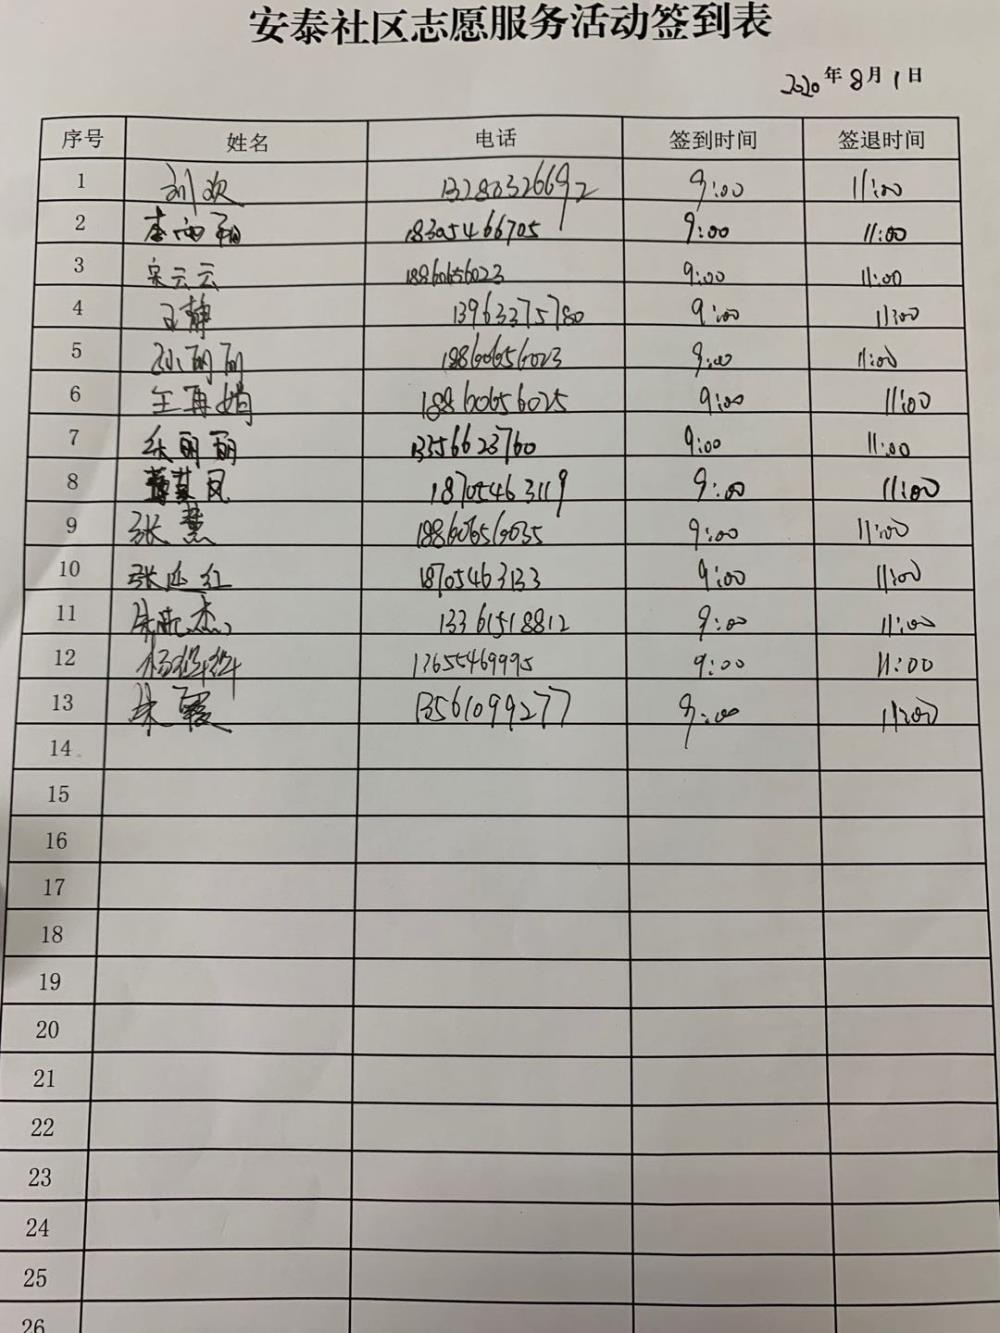 安泰社区志愿服务活动签到表
2020年8月1日
序号 姓名 电话 签到时间 签退时间
1 刘欢 13280326692 9:00 11:00
2 李雨 18305466705 9:00 11:00
3 宋云云 18860656023 9:00 11:00
4 王静 13963375780 9:00 11:00
5 孙丽丽 18860656023 9:00 11:00
6 王再娟 18860656025 9:00 11:00
7 张丽丽 13356623760 9:00 11:00
8 凤 18705463119 9:00 11:00
9 张慧 18860656035 9:00 11:00
10 张延红 18705463133 9:00 11:00
11 杰 13361518812 9:00 11:00
12 杨 13655469995 9:00 11:00
13 霞 13561099277 9:00 11:00
14
15
16
17
18
19
20
21
22
23
24
25
26